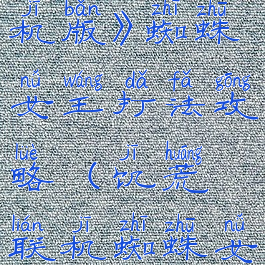 jī bǎn zhī zhū
机版》蜘蛛
nǚ wáng dǎ fǎ gōng
女王打法攻
lüè jī huāng
略（饥荒
lián jī zhī zhū nǚ
联机蜘蛛女